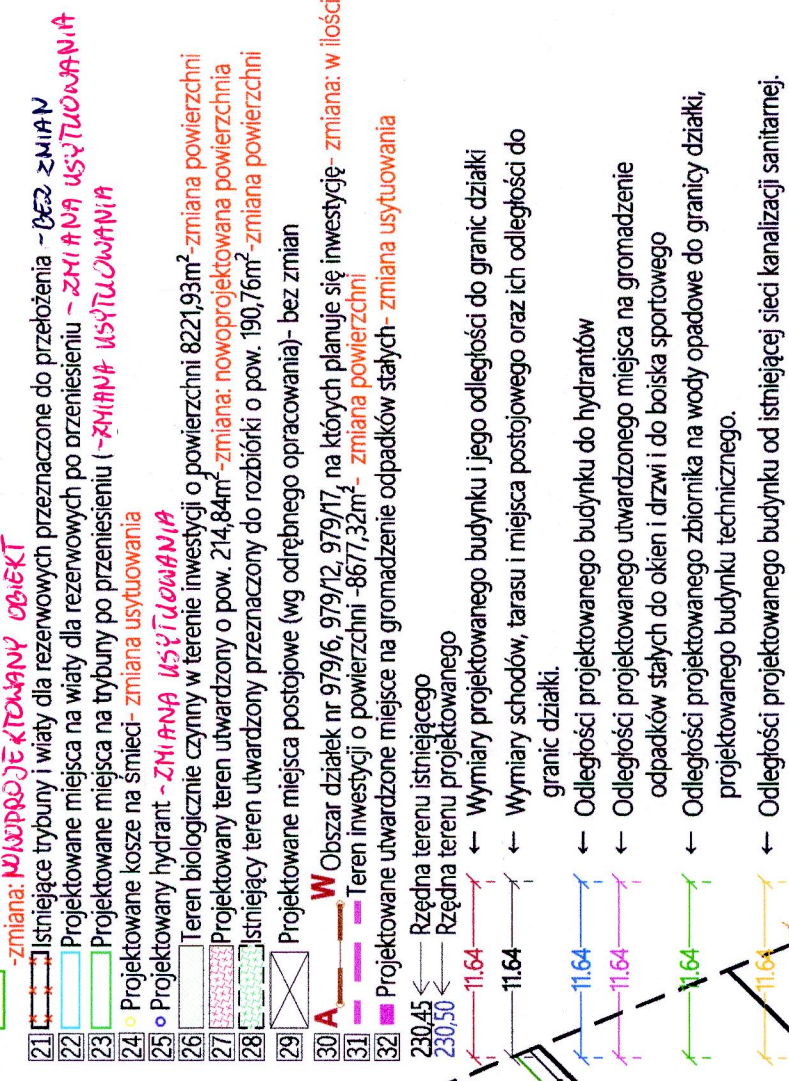 -zmiana: NOWOPROJEKTOWANY OBIEKT
21 Istniejące trybuny i wiaty dla rezerwowych przeznaczone do przełożenia - BEZ ZMIAN
22 Projektowane miejsca na wiaty dla rezerwowych po przeniesieniu - ZMIANA USYTUOWANIA
23 Projektowane miejsca na trybuny po przeniesieniu ( - ZMIANA USYTUOWANIA
24 Projektowane kosze na śmieci- zmiana usytuowania
25 Projektowany hydrant - ZMIANA USYTUOWANIA
26 Teren biologicznie czynny w terenie inwestycji o powierzchni 8221,93m²-zmiana powierzchni
27 Projektowany teren utwardzony o pow. 214,84m²-zmiana: nowoprojektowana powierzchnia
28 Istniejący teren utwardzony przeznaczony do rozbiórki o pow. 190,76m²-zmiana powierzchni
29 Projektowane miejsca postojowe (wg odrębnego opracowania)- bez zmian
30 A W Obszar działek nr 979/6, 979/12, 979/17, na których planuje się inwestycję- zmiana: w ilości
31 Teren inwestycji o powierzchni -8677,32m²- zmiana powierzchni
32 Projektowane utwardzone miejsce na gromadzenie odpadków stałych- zmiana usytuowania
230,45 ← Rzędna terenu istniejącego
230,50 ← Rzędna terenu projektowanego
11.64 ← Wymiary projektowanego budynku i jego odległości do granic działki
11.64 ← Wymiary schodów, tarasu i miejsca postojowego oraz ich odległości do
granic działki.
11.64 ← Odległości projektowanego budynku do hydrantów
11.64 ← Odległości projektowanego utwardzonego miejsca na gromadzenie
odpadków stałych do okien i drzwi i do boiska sportowego
11.64 ← Odległości projektowanego zbiornika na wody opadowe do granicy działki,
projektowanego budynku technicznego.
11.64 ← Odległości projektowanego budynku od istniejącej sieci kanalizacji sanitarnej.